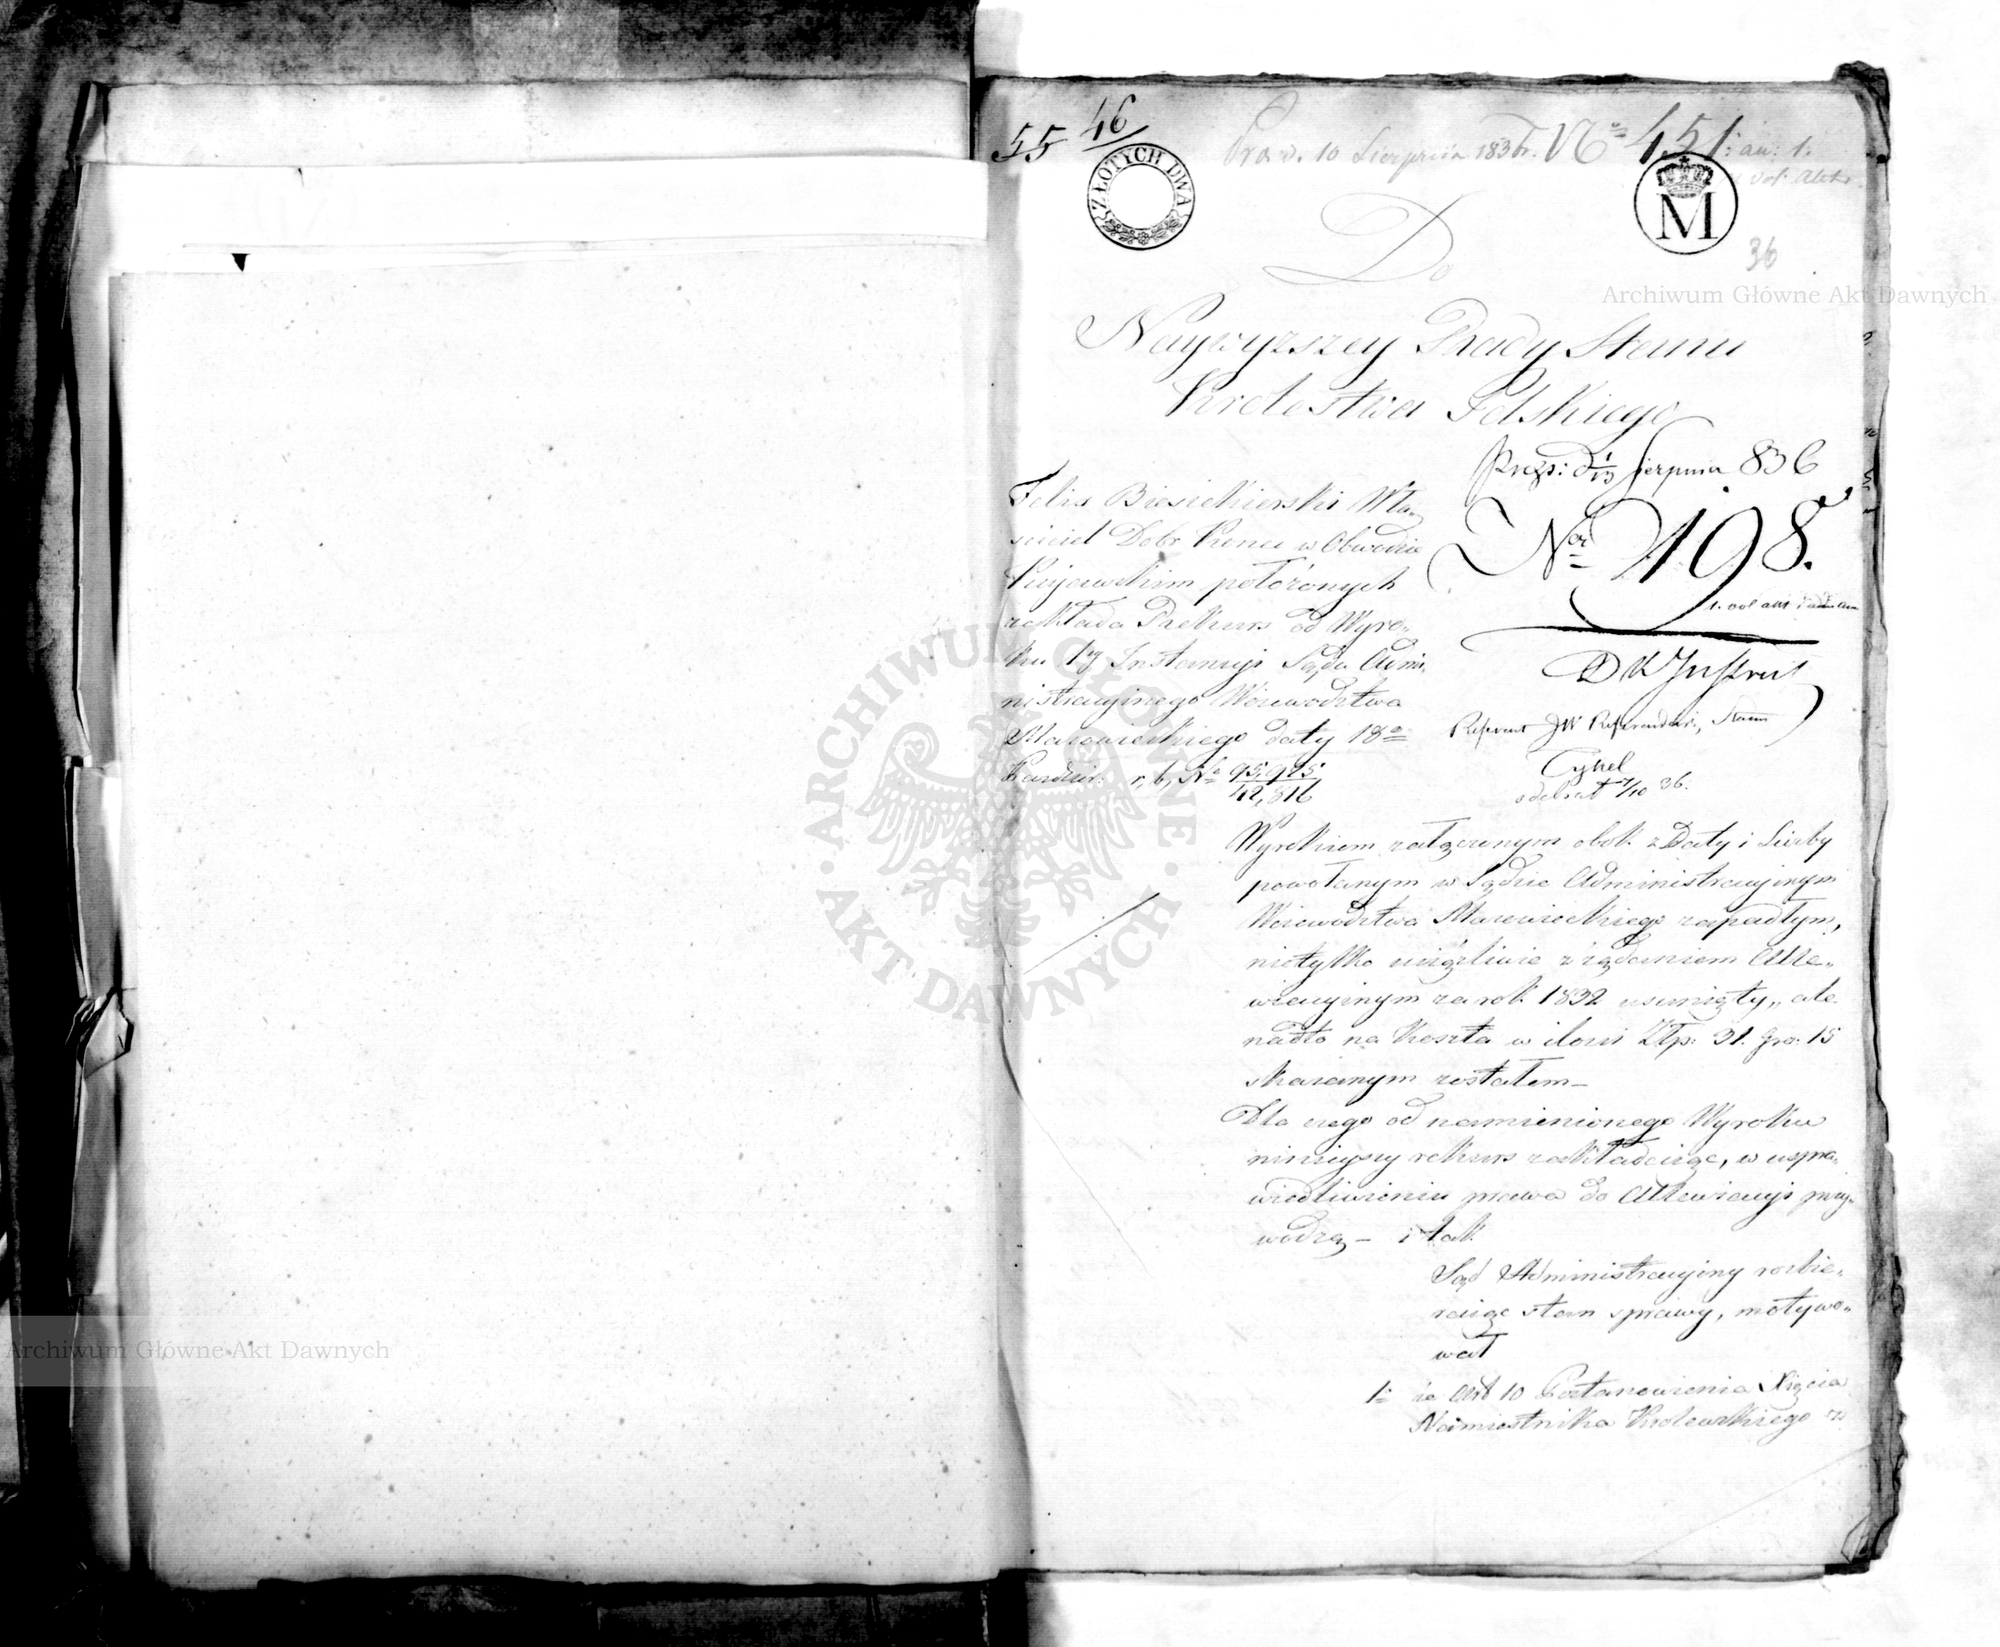 55 46
Praes. 10 Sierpnia 1836 r. No 451: an: 1.
vol: Aktów
ZŁOTYCH DWA
M
36
Archiwum Główne Akt Dawnych
Do
Naywyższey Rady Stanu
Krolestwa Polskiego
Prezs: d 1/13 Sierpnia 836
Felix Biesiekierski Wła„
sciciel Dobr Konec w Obwodzie
Kujawskim położonych
zakłada Rekurs od Wyro„
ku 1éy Instancyi Sądu Admi„
nistracyinego Woiewodztwa
Mazowieckiego daty 18o
Pazdzier. r, b, No 95,975/42,816
Ner 198.
1. vol akt
D K Instrukt
Referent JW Referendarz, Stanu
Cykel
odebrał 7/10 36.
Wyrokiem załączonym obok z Daty i Liczby
powołanym w Sądzie Administracyinym
Woiewodztwa Mazowieckiego zapadłym,
nietylko uciążliwie z żądaniem Alle„
wiacyinym za rok 1832 usunięty„ ale
nadto na koszta w ilosci Złp: 31. gro: 15
skazanym zostałem —
Dla czego od namienionego Wyroku
ninieyszy rekurs zakładaiąc, w uspra„
wiedliwieniu prawa do Allewiacyi przy„
wodzę — i tak
Sąd Administracyiny rozbie„
raiąc stan sprawy, motywo„
wał
1o że Art 10 Postanowienia Xięcia
Namiestnika Krolewskiego z
ARCHIWUM GŁÓWNE AKT DAWNYCH
Archiwum Główne Akt Dawnych